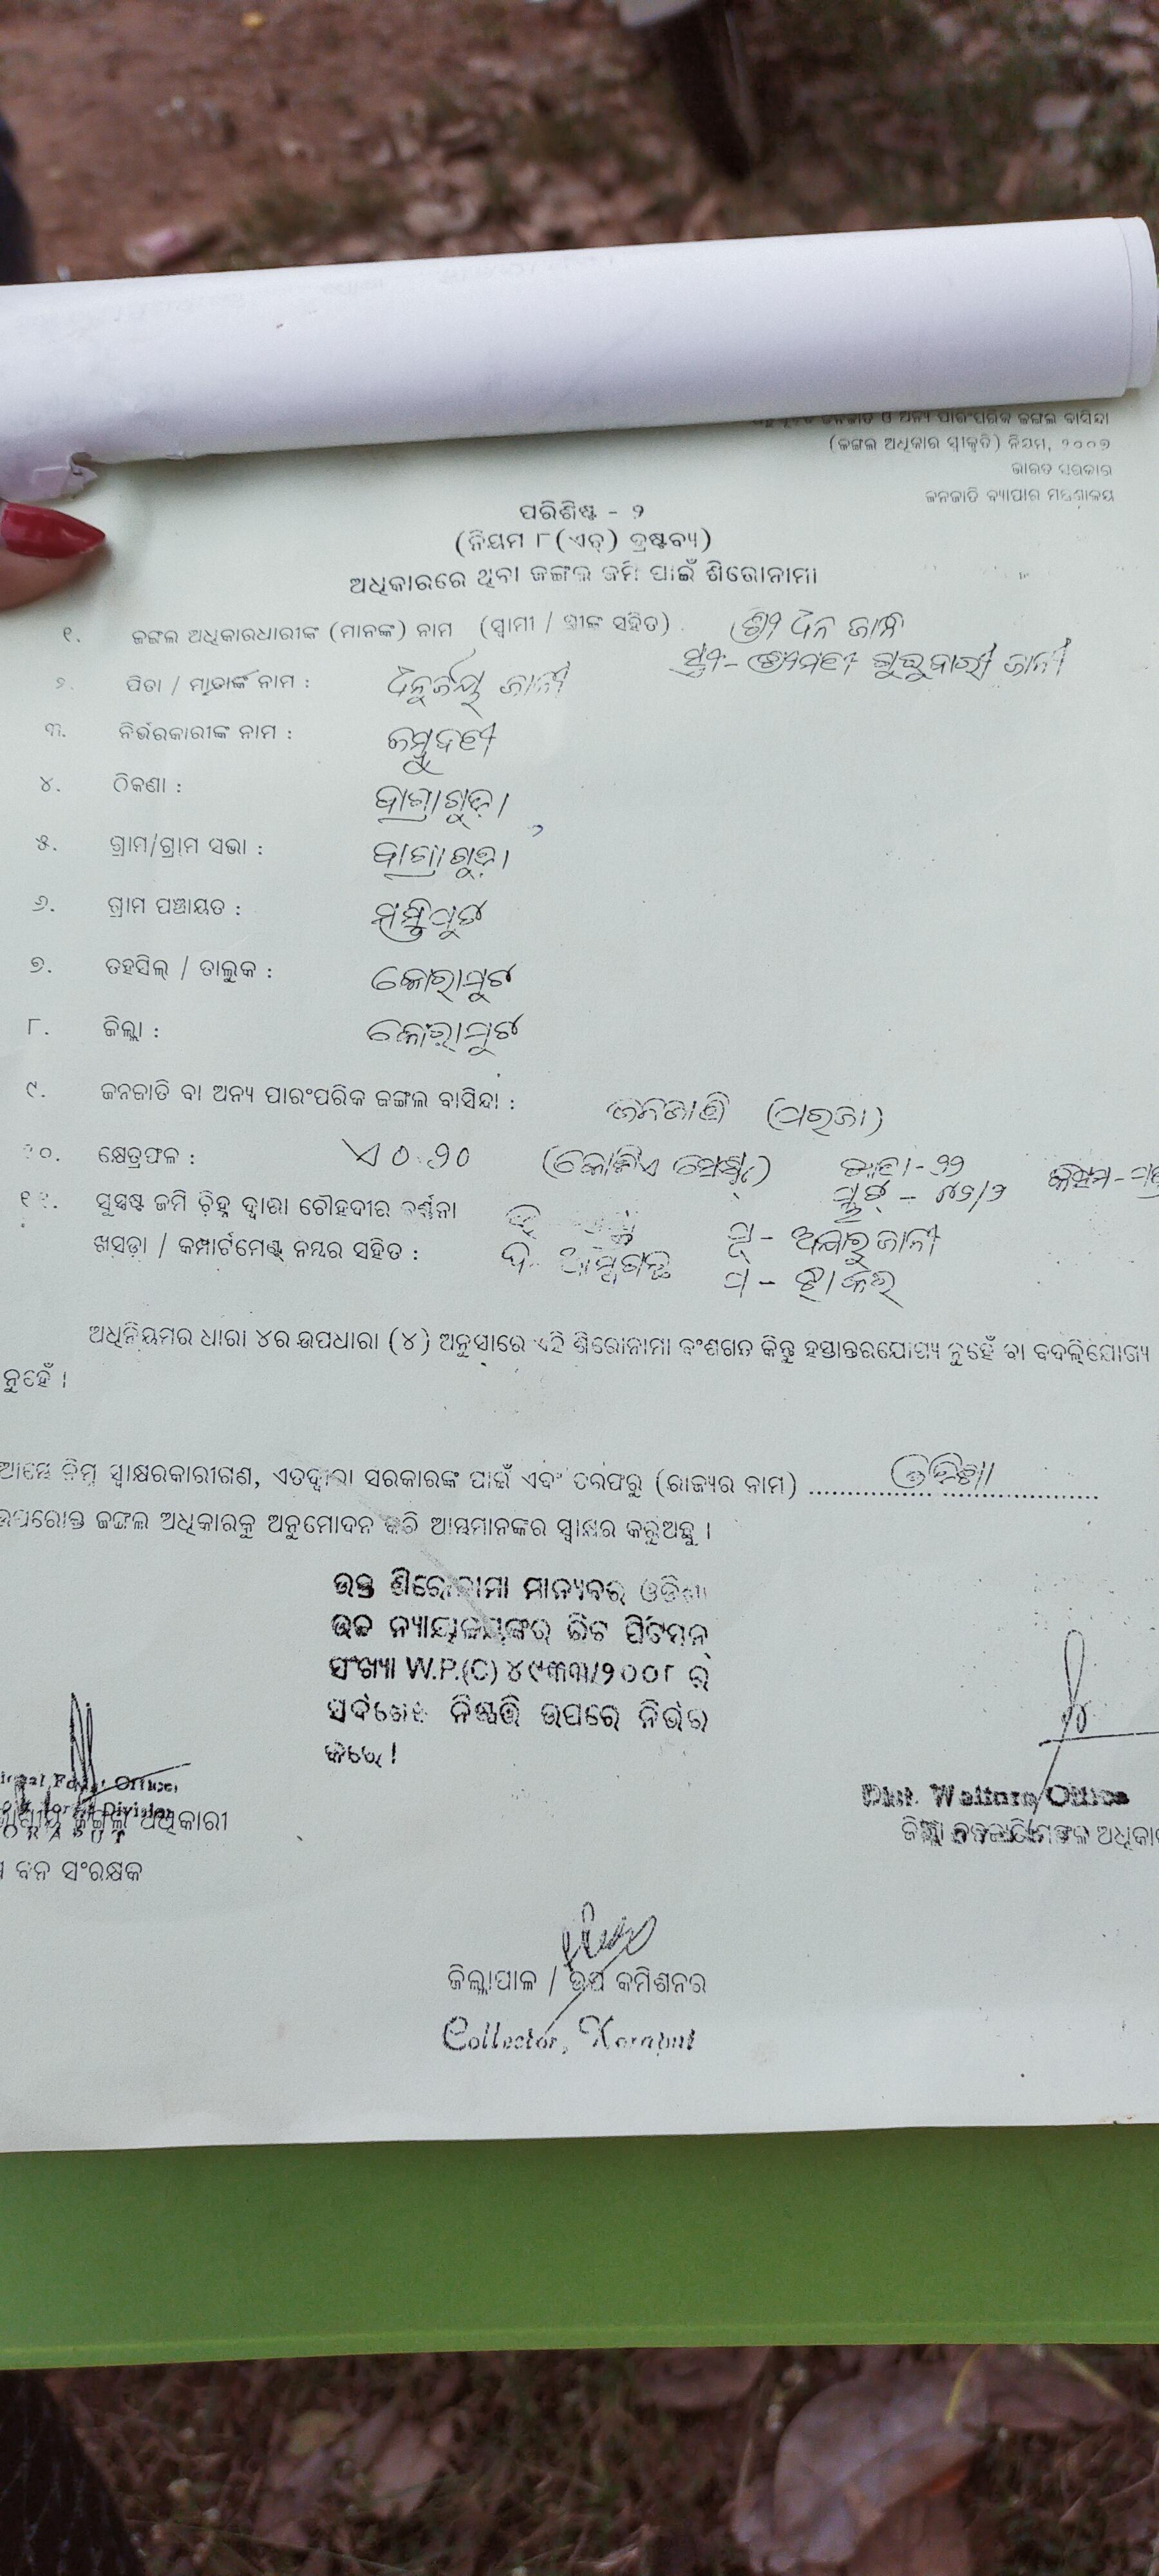 ଜନଜାତି ଓ ଅନ୍ୟ ପାରଂପରିକ ଜଙ୍ଗଲ ବାସିନ୍ଦା
(ଜଙ୍ଗଲ ଅଧିକାର ସ୍ୱୀକୃତି) ନିୟମ, ୨୦୦୭
ଭାରତ ସରକାର
ଜନଜାତି ବ୍ୟାପାର ମନ୍ତ୍ରଣାଳୟ
ପରିଶିଷ୍ଟ - ୨
(ନିୟମ ୮(ଏଚ୍) ଦ୍ରଷ୍ଟବ୍ୟ)
ଅଧିକାରରେ ଥିବା ଜଙ୍ଗଲ ଜମି ପାଇଁ ଶିରୋନାମା
୧. ଜଙ୍ଗଲ ଅଧିକାରଧାରୀଙ୍କ (ମାନଙ୍କ) ନାମ (ସ୍ୱାମୀ / ସ୍ତ୍ରୀଙ୍କ ସହିତ) ଶ୍ରୀ ଧନ ଜାନି
ସ୍ତ୍ରୀ- ଶ୍ରୀମତୀ ଗୁରୁବାରୀ ଜାନୀ
୨. ପିତା / ମାତାଙ୍କ ନାମ : ଧନୁର୍ଜୟ ଜାନୀ
୩. ନିର୍ଭରକାରୀଙ୍କ ନାମ :
୪. ଠିକଣା : ବାଗ୍ରାଗୁଡ଼ା
୫. ଗ୍ରାମ/ଗ୍ରାମ ସଭା : ବାଗ୍ରାଗୁଡ଼ା
୬. ଗ୍ରାମ ପଞ୍ଚାୟତ : ମସ୍ତିପୁଟ
୭. ତହସିଲ୍ / ତାଲୁକ : କୋରାପୁଟ
୮. ଜିଲ୍ଲା : କୋରାପୁଟ
୯. ଜନଜାତି ବା ଅନ୍ୟ ପାରଂପରିକ ଜଙ୍ଗଲ ବାସିନ୍ଦା : ଜନଜାତି (ପରଜା)
୧୦. କ୍ଷେତ୍ରଫଳ : ଏ ୦.୨୦
୧୧. ସୁସ୍ପଷ୍ଟ ଜମି ଚିହ୍ନ ଦ୍ୱାରା ଚୌହଦୀର ବର୍ଣ୍ଣନା ପ୍ଲଟ୍ - ୪୨/୨
ଖସଡ଼ା / କମ୍ପାର୍ଟମେଣ୍ଟ ନମ୍ବର ସହିତ :
ଅଧିନିୟମର ଧାରା ୪ର ଉପଧାରା (୪) ଅନୁସାରେ ଏହି ଶିରୋନାମା ବଂଶଗତ କିନ୍ତୁ ହସ୍ତାନ୍ତରଯୋଗ୍ୟ ନୁହେଁ ବା ବଦଳିଯୋଗ୍ୟ
ନୁହେଁ ।
ଆମେ ନିମ୍ନ ସ୍ୱାକ୍ଷରକାରୀଗଣ, ଏତଦ୍ୱାରା ସରକାରଙ୍କ ପାଇଁ ଏବଂ ତରଫରୁ (ରାଜ୍ୟର ନାମ) ଓଡ଼ିଶା
ଉପରୋକ୍ତ ଜଙ୍ଗଲ ଅଧିକାରକୁ ଅନୁମୋଦନ କରି ଆମ୍ଭମାନଙ୍କର ସ୍ୱାକ୍ଷର କରୁଅଛୁ ।
ଉକ୍ତ ଶିରୋନାମା ମାନ୍ୟବର ଓଡ଼ିଶା
ଉଚ୍ଚ ନ୍ୟାୟାଳୟଙ୍କର ରିଟ ପିଟିସନ୍
ସଂଖ୍ୟା W.P.(C) ୪୯୩୩/୨୦୦୮ ର
ସର୍ବଶେଷ ନିଷ୍ପତ୍ତି ଉପରେ ନିର୍ଭର
କରେ !
Dist. Welfare Office
ଜଙ୍ଗଲ ଅଧିକାରୀ
ବନ ସଂରକ୍ଷକ
ଜିଲ୍ଲାପାଳ / ଉପ କମିଶନର
Collector, Koraput